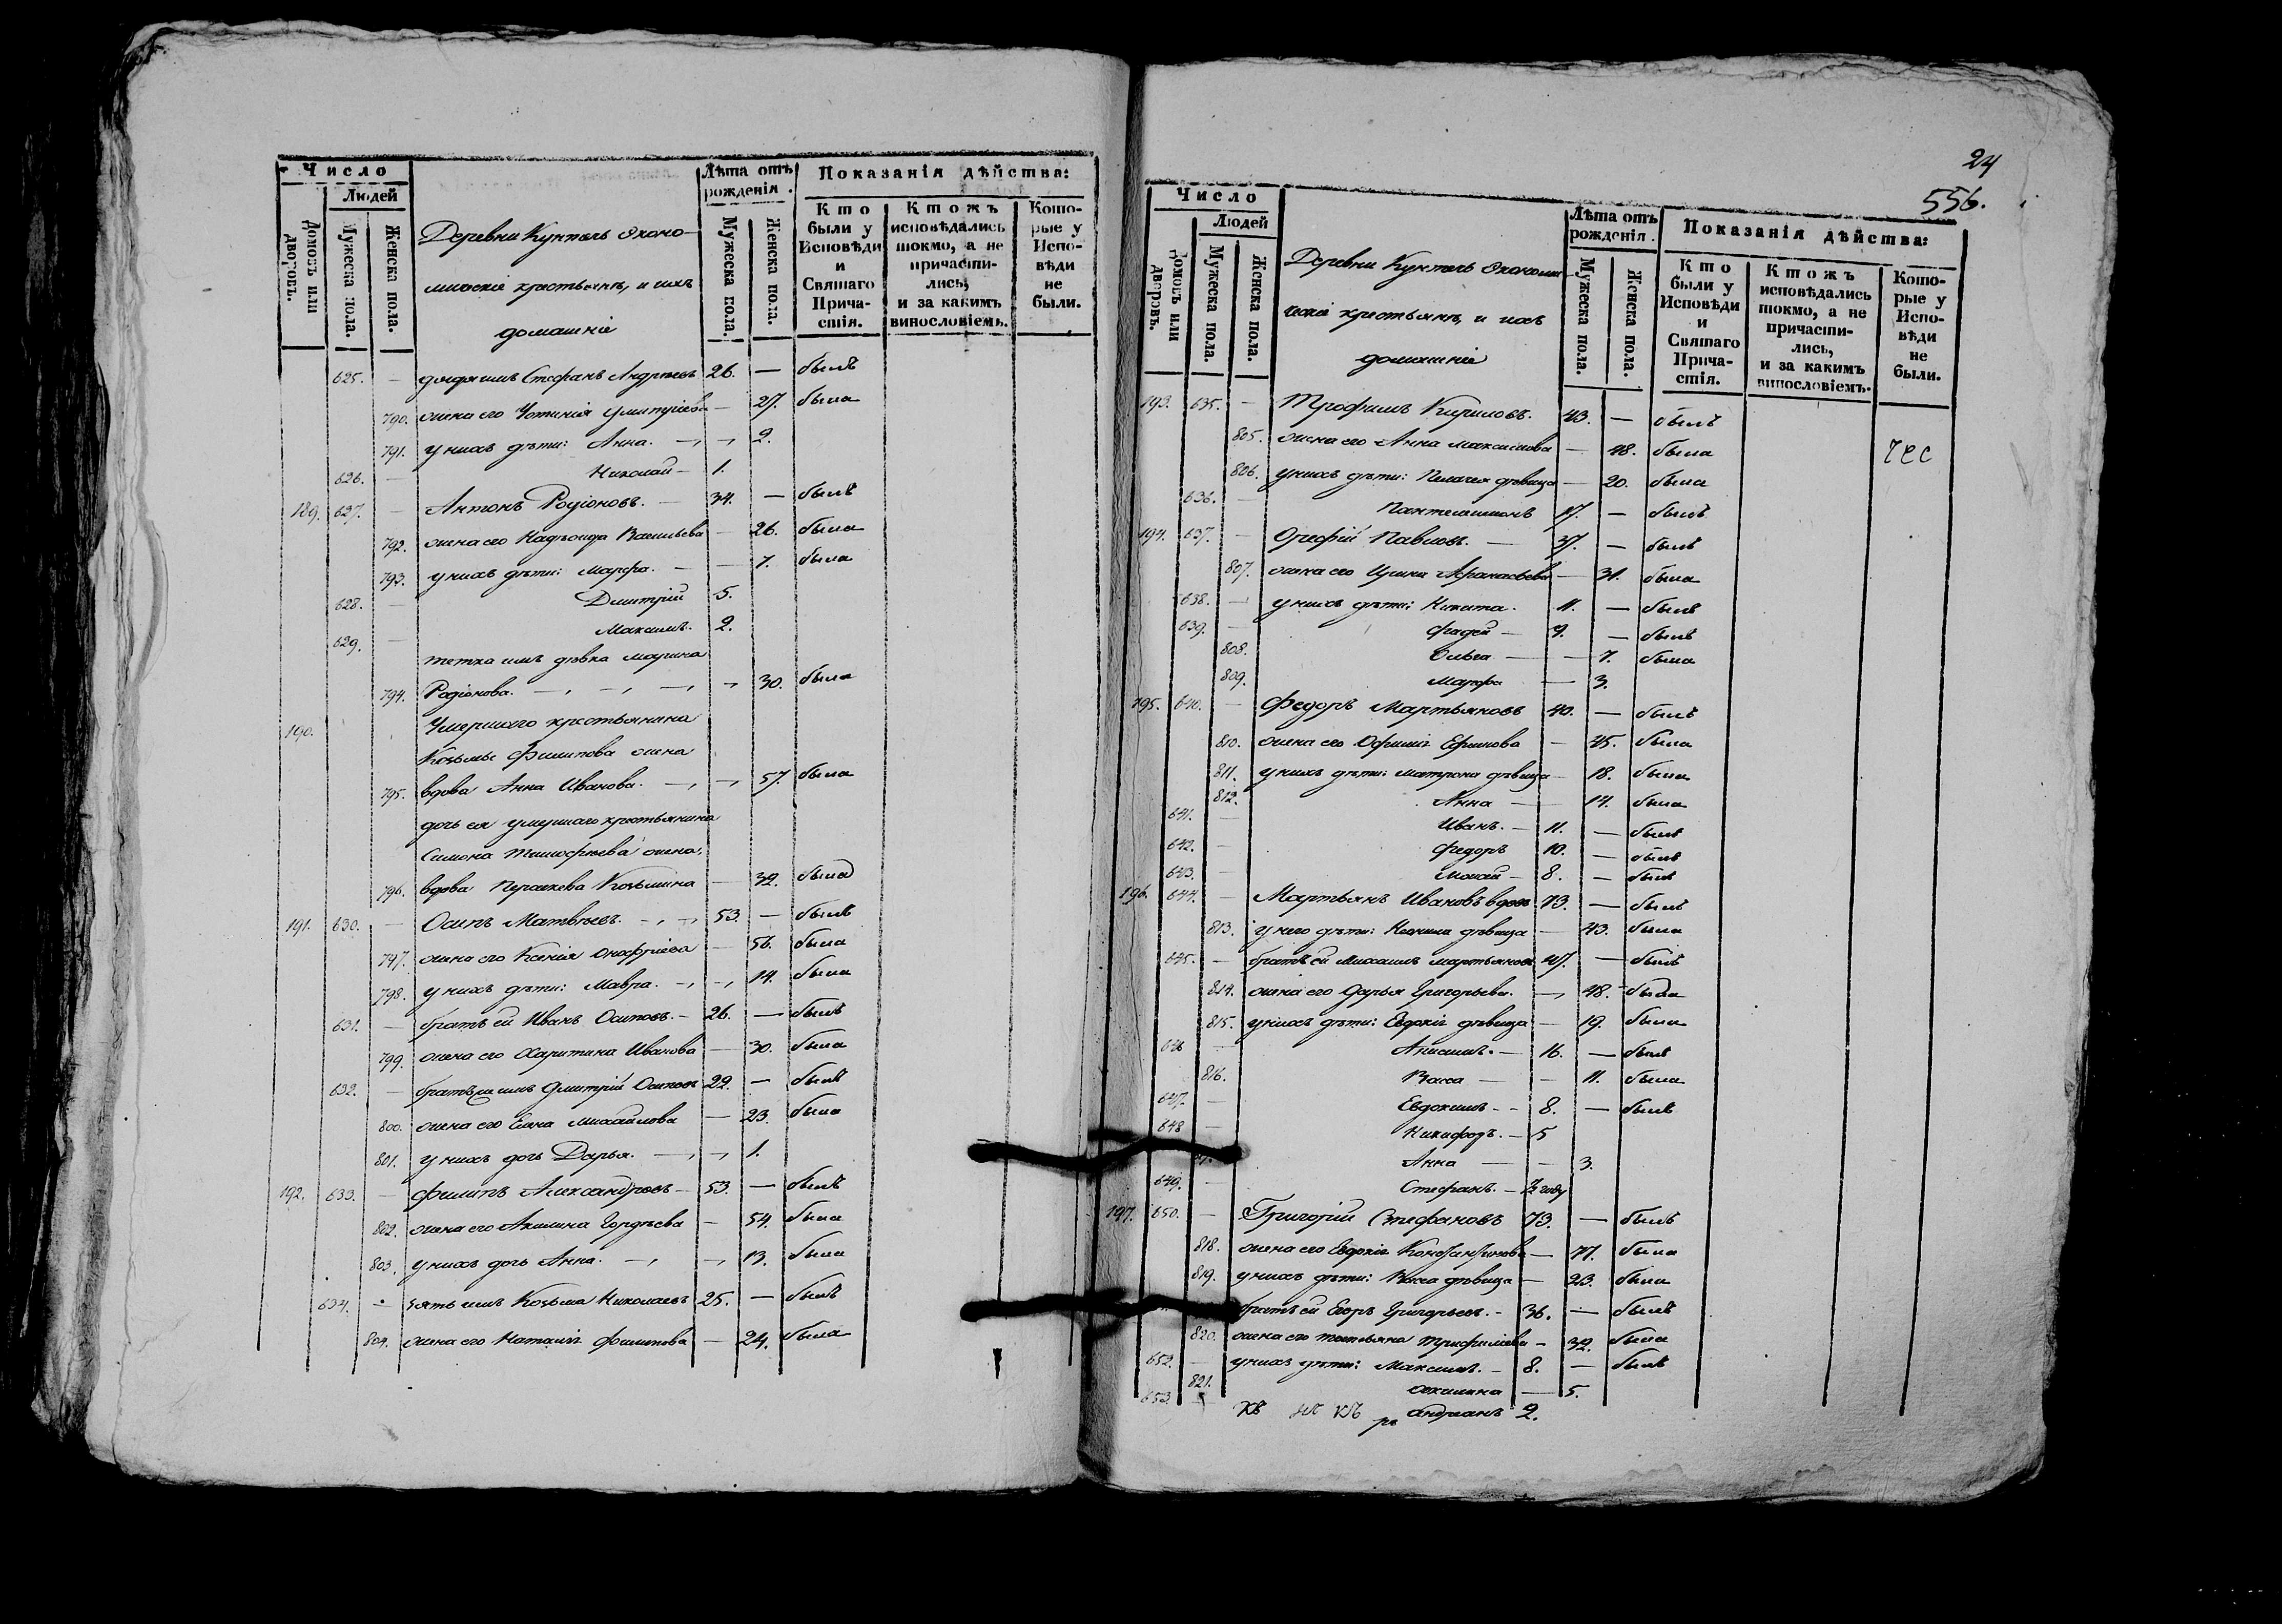 Число
Людей
Домовъ или дворовъ.
Мужеска пола.
Женска пола.
Деревни Кунтель Эконо-
мическiе крестьянъ, и ихъ
домашнiе
Лѣта отъ рожденiя.
Мужеска пола.
Женска пола.
Показанiя дѣйства:
Кто были у Исповѣди и Святаго Причастiя.
Ктожъ исповѣдались токмо, а не причастились, и за какимъ винословiемъ.
Которые у Исповѣди не были.
625. — Стефанъ Андреевъ 26. — былъ
790. жена его — 27. была
791. у нихъ дѣти: Анна. — 2.
626. — Николай — 1.
189. 627. — Антонъ Родiоновъ. — 34. — былъ
792. жена его Надежда Васильева — 26. была
793. у нихъ дѣти: Марфа. — — 7. была
628. — Дмитрiй 5.
629. — Максимъ. 2.
тетка имъ дѣвка Марина
794. Родiонова. — 30. была
190. Умершаго крестьянина
Козьмы Филипова жена
795. вдова Анна Иванова. — 57. была
дочь ея умершаго крестьянина
Симона Тимофѣева жена,
796. вдова Параскева Козьмина — 32. была
191. 630. — Осипъ Матвѣевъ. — 53. — былъ
797. жена его Ксенiя Онофрiева — 56. была
798. у нихъ дѣти: Мавра. — 14. была
631. — братъ ей Иванъ Осиповъ. — 26. — былъ
799. жена его Харитина Иванова — 30. была
632. — братъ имъ Дмитрiй Осиповъ 22. — былъ
800. жена его Елена Михайлова — 23. была
801. у нихъ дочь Дарья. — 1.
192. 633. — Филипъ Александровъ — 53. — былъ
802. жена его Акилина Гордѣева — 54. была
803. у нихъ дочь Анна. — 13. была
634. — зять имъ Козьма Николаевъ 25. — былъ
804. жена его Наталiя Филипова — 24. была
24
556.
Число
Людей
Домовъ или дворовъ.
Мужеска пола.
Женска пола.
Деревни Кунтель Экономи-
ческiе крестьянъ, и ихъ
домашнiе
Лѣта отъ рожденiя.
Мужеска пола.
Женска пола.
Показанiя дѣйства:
Кто были у Исповѣди и Святаго Причастiя.
Ктожъ исповѣдались токмо, а не причастились, и за какимъ винословiемъ.
Которые у Исповѣди не были.
193. 635. — Трофимъ Кириловъ. 43. — былъ
805. жена его Анна Максимова — 48. была
806. у нихъ дѣти: Пелагея дѣвица — 20. была
636. — Пантелеимонъ 17. — былъ
194. 637. — Павловъ. — 37. — былъ
807. жена его Ирина Афанасьева — 31. была
638. — у нихъ дѣти: Никита. 11. — былъ
639. — Фадей — 9. — былъ
808. Ольга — — 7. была
809. Марфа — 3.
195. 640. — Федоръ Мартьяновъ 40. — былъ
810. жена его Ефимова — 45. была
811. у нихъ дѣти: Матрона дѣвица — 18. была
812. Анна — 14. была
641. — Иванъ. — 11. — былъ
642. — Федоръ 10. — былъ
643. — 8. — былъ
196. 644. — Мартьянъ Ивановъ вдовъ 73. — былъ
813. у него дѣти: дѣвица — 43. была
645. — братъ ей Михаилъ Мартьяновъ 47. — былъ
814. жена его Дарья Григорьева. — 48. — была
815. у нихъ дѣти: Евдокiя дѣвица — 19. была
646 — Анисимъ. — 16. — былъ
816. Васса — — 11. была
647. — Евдокимъ — 8. — былъ
648 — Никифоръ. — 5
Анна — — 3.
649. — Стефанъ. — ½ году
197. 650. — Григорiй Стефановъ 73. — былъ
818. жена его Евдокiя Константинова — 77. была
819. у нихъ дѣти: Васса дѣвица — 23. была
братъ ей Егоръ Григорьевъ. — 36. — былъ
820. жена его Татьяна Трифилiева — 32. была
652. — у нихъ дѣти: Максимъ. — 8. — былъ
821. Акилина — 5.
653. — Андреанъ 2.